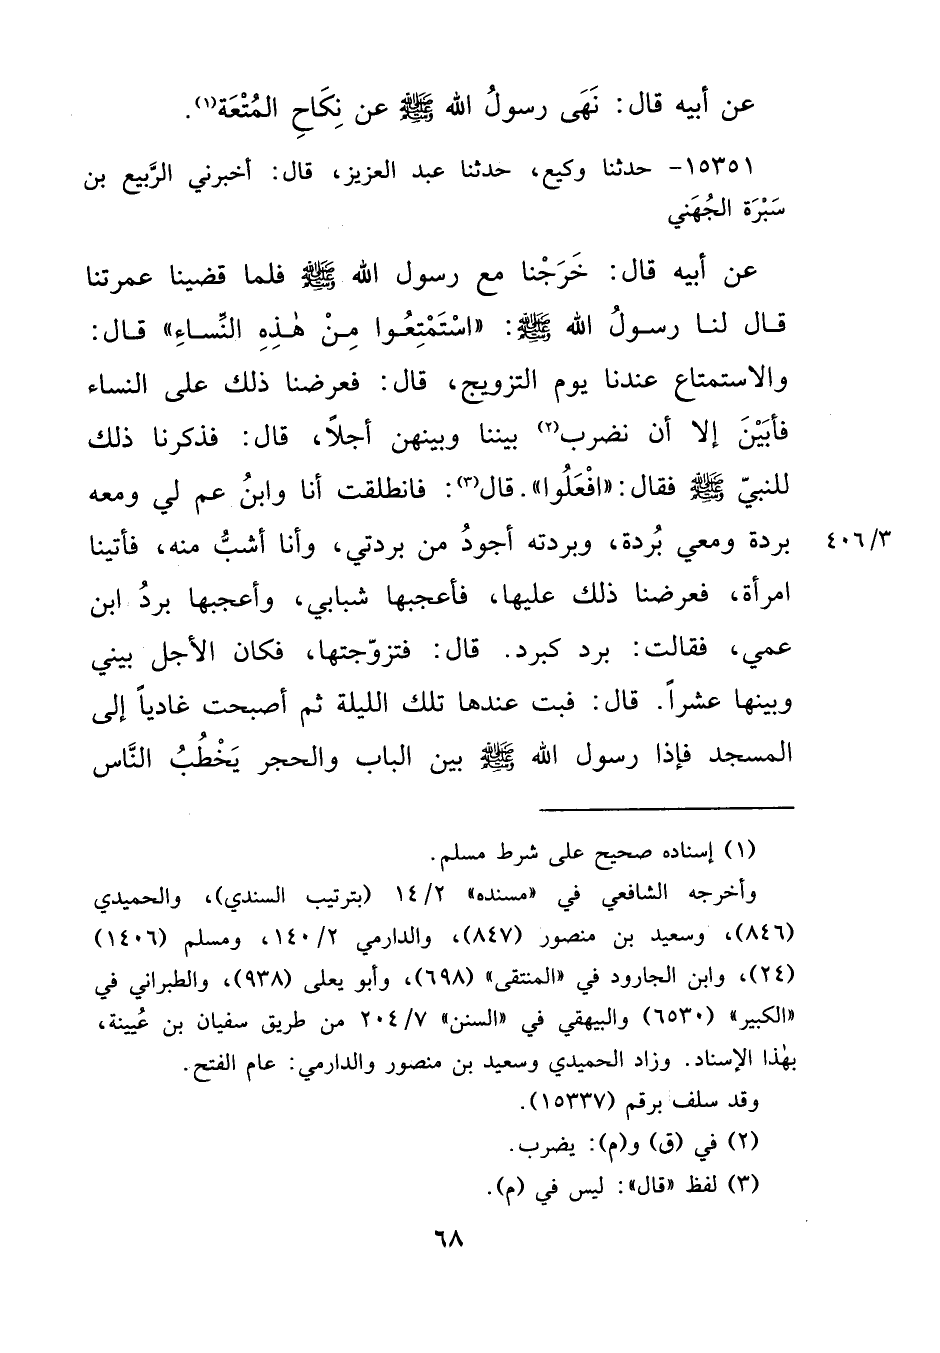 عن أبيه قال: نَهَى رسولُ الله ﷺ عن نِكَاحِ المُتْعَة(١).
١٥٣٥١- حدثنا وكيع، حدثنا عبد العزيز، قال: أخبرني الرَّبيع بن
سَبْرَة الجُهَني
عن أبيه قال: خَرَجْنا مع رسول الله ﷺ فلما قضينا عمرتنا
قال لنا رسولُ الله ﷺ: «اسْتَمْتِعُوا مِنْ هٰذِهِ النِّساءِ» قال:
والاستمتاع عندنا يوم التزويج، قال: فعرضنا ذلك على النساء
فأَبَيْنَ إلا أن نضرب(٢) بيننا وبينهن أجلاً، قال: فذكرنا ذلك
للنبيّ ﷺ فقال: «افْعَلُوا». قال(٣): فانطلقت أنا وابنُ عم لي ومعه
بردة ومعي بُردة، وبردته أجودُ من بردتي، وأنا أشبُّ منه، فأتينا ٤٠٦/٣
امرأة، فعرضنا ذلك عليها، فأعجبها شبابي، وأعجبها بردُ ابن
عمي، فقالت: برد كبرد. قال: فتزوّجتها، فكان الأجل بيني
وبينها عشراً. قال: فبت عندها تلك الليلة ثم أصبحت غادياً إلى
المسجد فإذا رسول الله ﷺ بين الباب والحجر يَخْطُبُ النَّاس
(١) إسناده صحيح على شرط مسلم.
وأخرجه الشافعي في «مسنده» ١٤/٢ (بترتيب السندي)، والحميدي
(٨٤٦)، وسعيد بن منصور (٨٤٧)، والدارمي ١٤٠/٢، ومسلم (١٤٠٦)
(٢٤)، وابن الجارود في «المنتقى» (٦٩٨)، وأبو يعلى (٩٣٨)، والطبراني في
«الكبير» (٦٥٣٠) والبيهقي في «السنن» ٢٠٤/٧ من طريق سفيان بن عُيينة،
بهٰذا الإسناد. وزاد الحميدي وسعيد بن منصور والدارمي: عام الفتح.
وقد سلف برقم (١٥٣٣٧).
(٢) في (ق) و(م): يضرب.
(٣) لفظ «قال»: ليس في (م).
٦٨